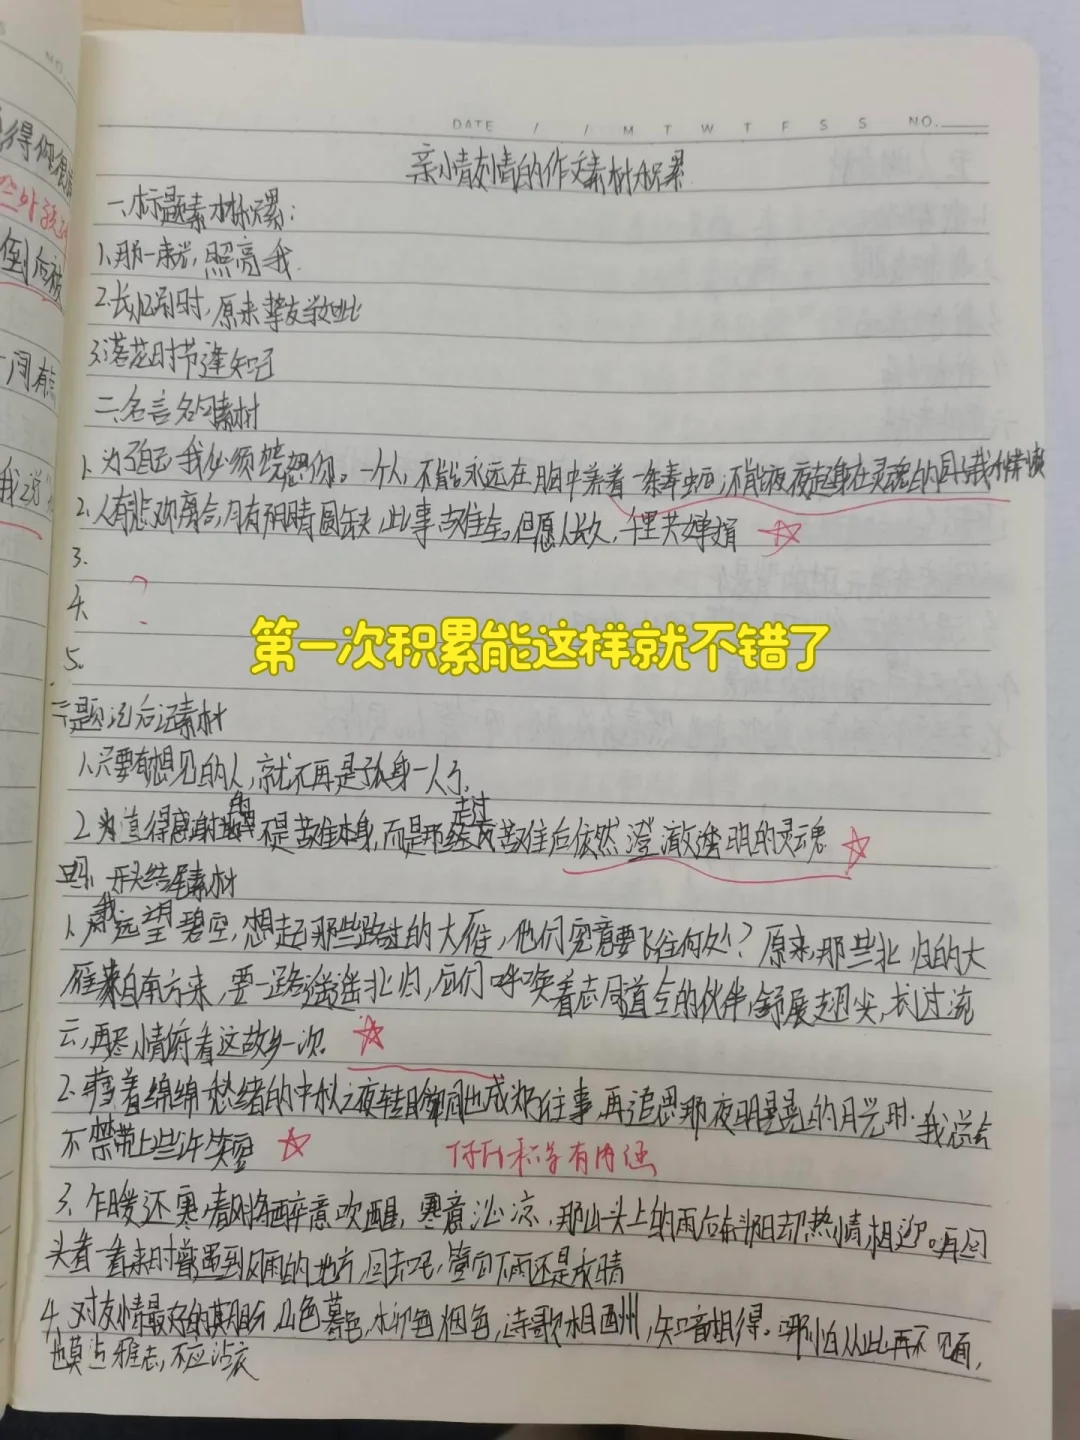 DATE / / M T W T F S S NO.
亲情友情的作文素材积累
一、标题素材积累：
1、那一束光，照亮我.
2.长亭别时，原来挚友敬此
3.落花时节逢知己
二、名言名句素材
1、为了自己我必须饶恕你。一个人，不能永远在胸中养着一条毒蛇，不能夜夜起身在灵魂的园子栽种荆棘
2.人有悲欢离合，月有阴晴圆缺，此事古难全。但愿人长久，千里共婵娟
3.
4. ?
5.
第一次积累能这样就不错了
三题记后记素材
1.只要有想见的人，就不再是孤身一人了.
2.值得感谢的不是苦难本身，而是那走过苦难后依然澄澈透明的灵魂
四、开头结尾素材
1、我远望碧空，想起那些路过的大雁，他们究竟要飞往何处？原来，那些北归的大
雁来自南方来，要一路遥遥北归，应们呼唤着志同道合的伙伴，舒展翅尖，划过流
云，再寒情府看这故乡一次。
2.藉着绵绵愁绪的中秋之夜转瞬间也成为往事，再追思那夜明晃晃的月光时，我总会
不禁带上些许笑容
积学有内涵
3、乍暖还寒，清风将醉意吹醒，寒意沁凉，那山头上的雨后斜阳却热情相迎。再回
头看一看来时曾遇到风雨的地方，回去吧，管它下雨还是放晴
4、对友情最好的期盼，山色暮色，水印色烟色，诗歌相酬，知音相得。哪怕从此再不见面，
也莫忘雅志，不应沾衣